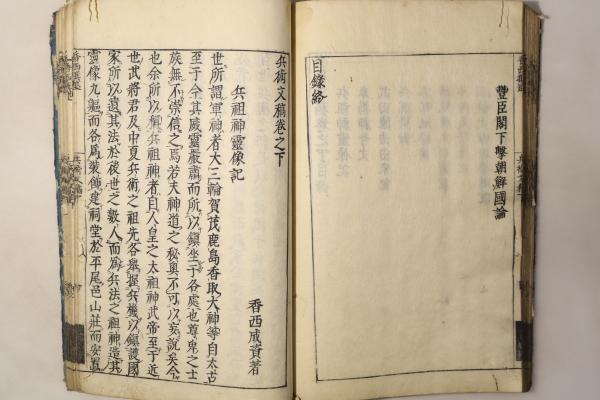 豐臣閣下擊朝鮮國論
目錄終
兵術文稿卷之下
香西成資著
兵祖神靈像記
世所謂軍神者大三輪賀茂鹿島香取大神等自太古
至于今其威靈嚴肅而所以鎮坐于各處也尊卑之士
族無不崇信之焉若夫神道之秘奧不可以妄說矣今
也余所以稱兵祖神者自人皇之太祖神武帝至于近
世武將君及中夏兵術之祖先各舉握兵機以鎮護國
家所以遺其法於後世之數人而為兵法之祖神造其
靈像九軀而各為裝飾建祠堂於平尾邑山莊而安置